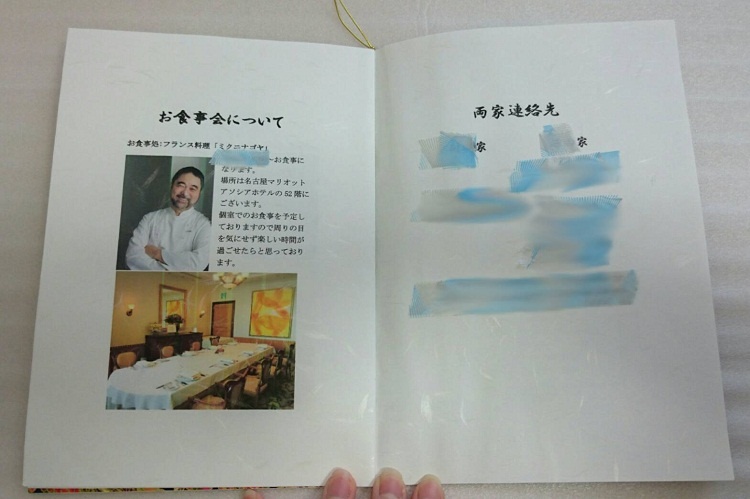 お食事会について
お食事処：フランス料理「ミクニナゴヤ」
～お食事に
なります。
場所は名古屋マリオット
アソシアホテルの52階に
ございます。
個室でのお食事を予定し
ておりますので周りの目
を気にせず楽しい時間が
過ごせたらと思っており
ます。
両家連絡先
家
家